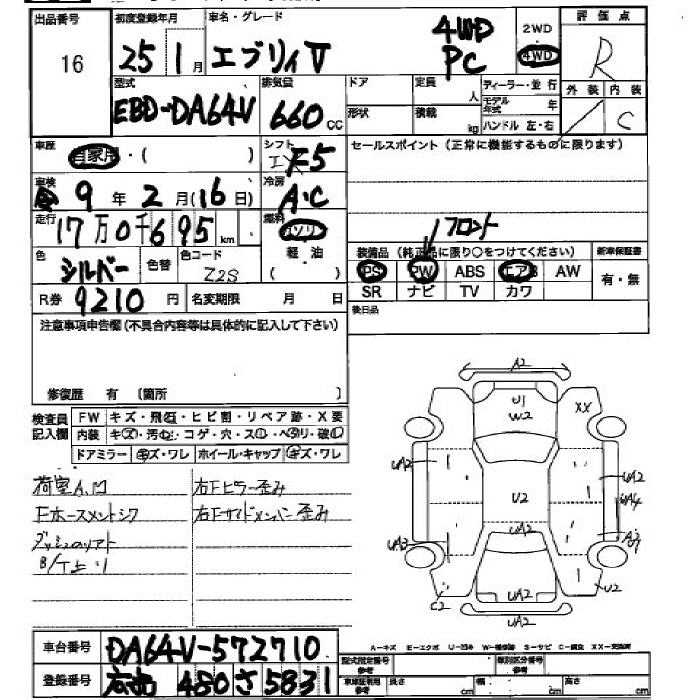 出品番号 初度登録年月 車名・グレード 2WD 評価点
16 25 1月 エブリィV 4WD PC 4WD R
型式 排気量 ドア 定員 人 ディーラー・並行 外装 内装
EBD-DA64V 660cc 形状 積載 kg モデル年式 年 / C
ハンドル 左・右
車歴 自家用・( ) シフト F5 セールスポイント(正常に機能するものに限ります)
車検 9年2月(16日) 冷房 A・C
走行 17万0千695km 燃料 ガソリン フロント
色 シルバー 色替 色コード Z2S 軽油 ( ) 装備品(純正品に限り○をつけてください) 新車保証書
PS PW ABS エアB AW 有・無
R券 9210円 名変期限 月 日 SR ナビ TV カワ
注意事項申告欄(不具合内容等は具体的に記入して下さい) 後日品
修復歴 有 〔箇所 〕
検査員記入欄 FW キズ・飛石・ヒビ割・リペア跡・X要
内装 キズ・汚れ・コゲ・穴・スレ・ヘタリ・破れ
ドアミラー キズ・ワレ ホイール・キャップ キズ・ワレ
荷室A,口 右Fピラー歪み
Fホースメントシワ 右Fサイドメンバー歪み
A2
U1 XX
W2
UA2 UA2
U2 UA4
UA2
UA3 A3
C2 UA2 U2
UA2
A-キズ E-エクボ U-凹み W-補修跡 S-サビ C-腐食 XX-交換済
車台番号 DA64V-572710
型式指定番号 参考 類別区分番号 参考
登録番号 480さ5831
車検証記載 参考 長さ cm 幅 cm 高さ cm